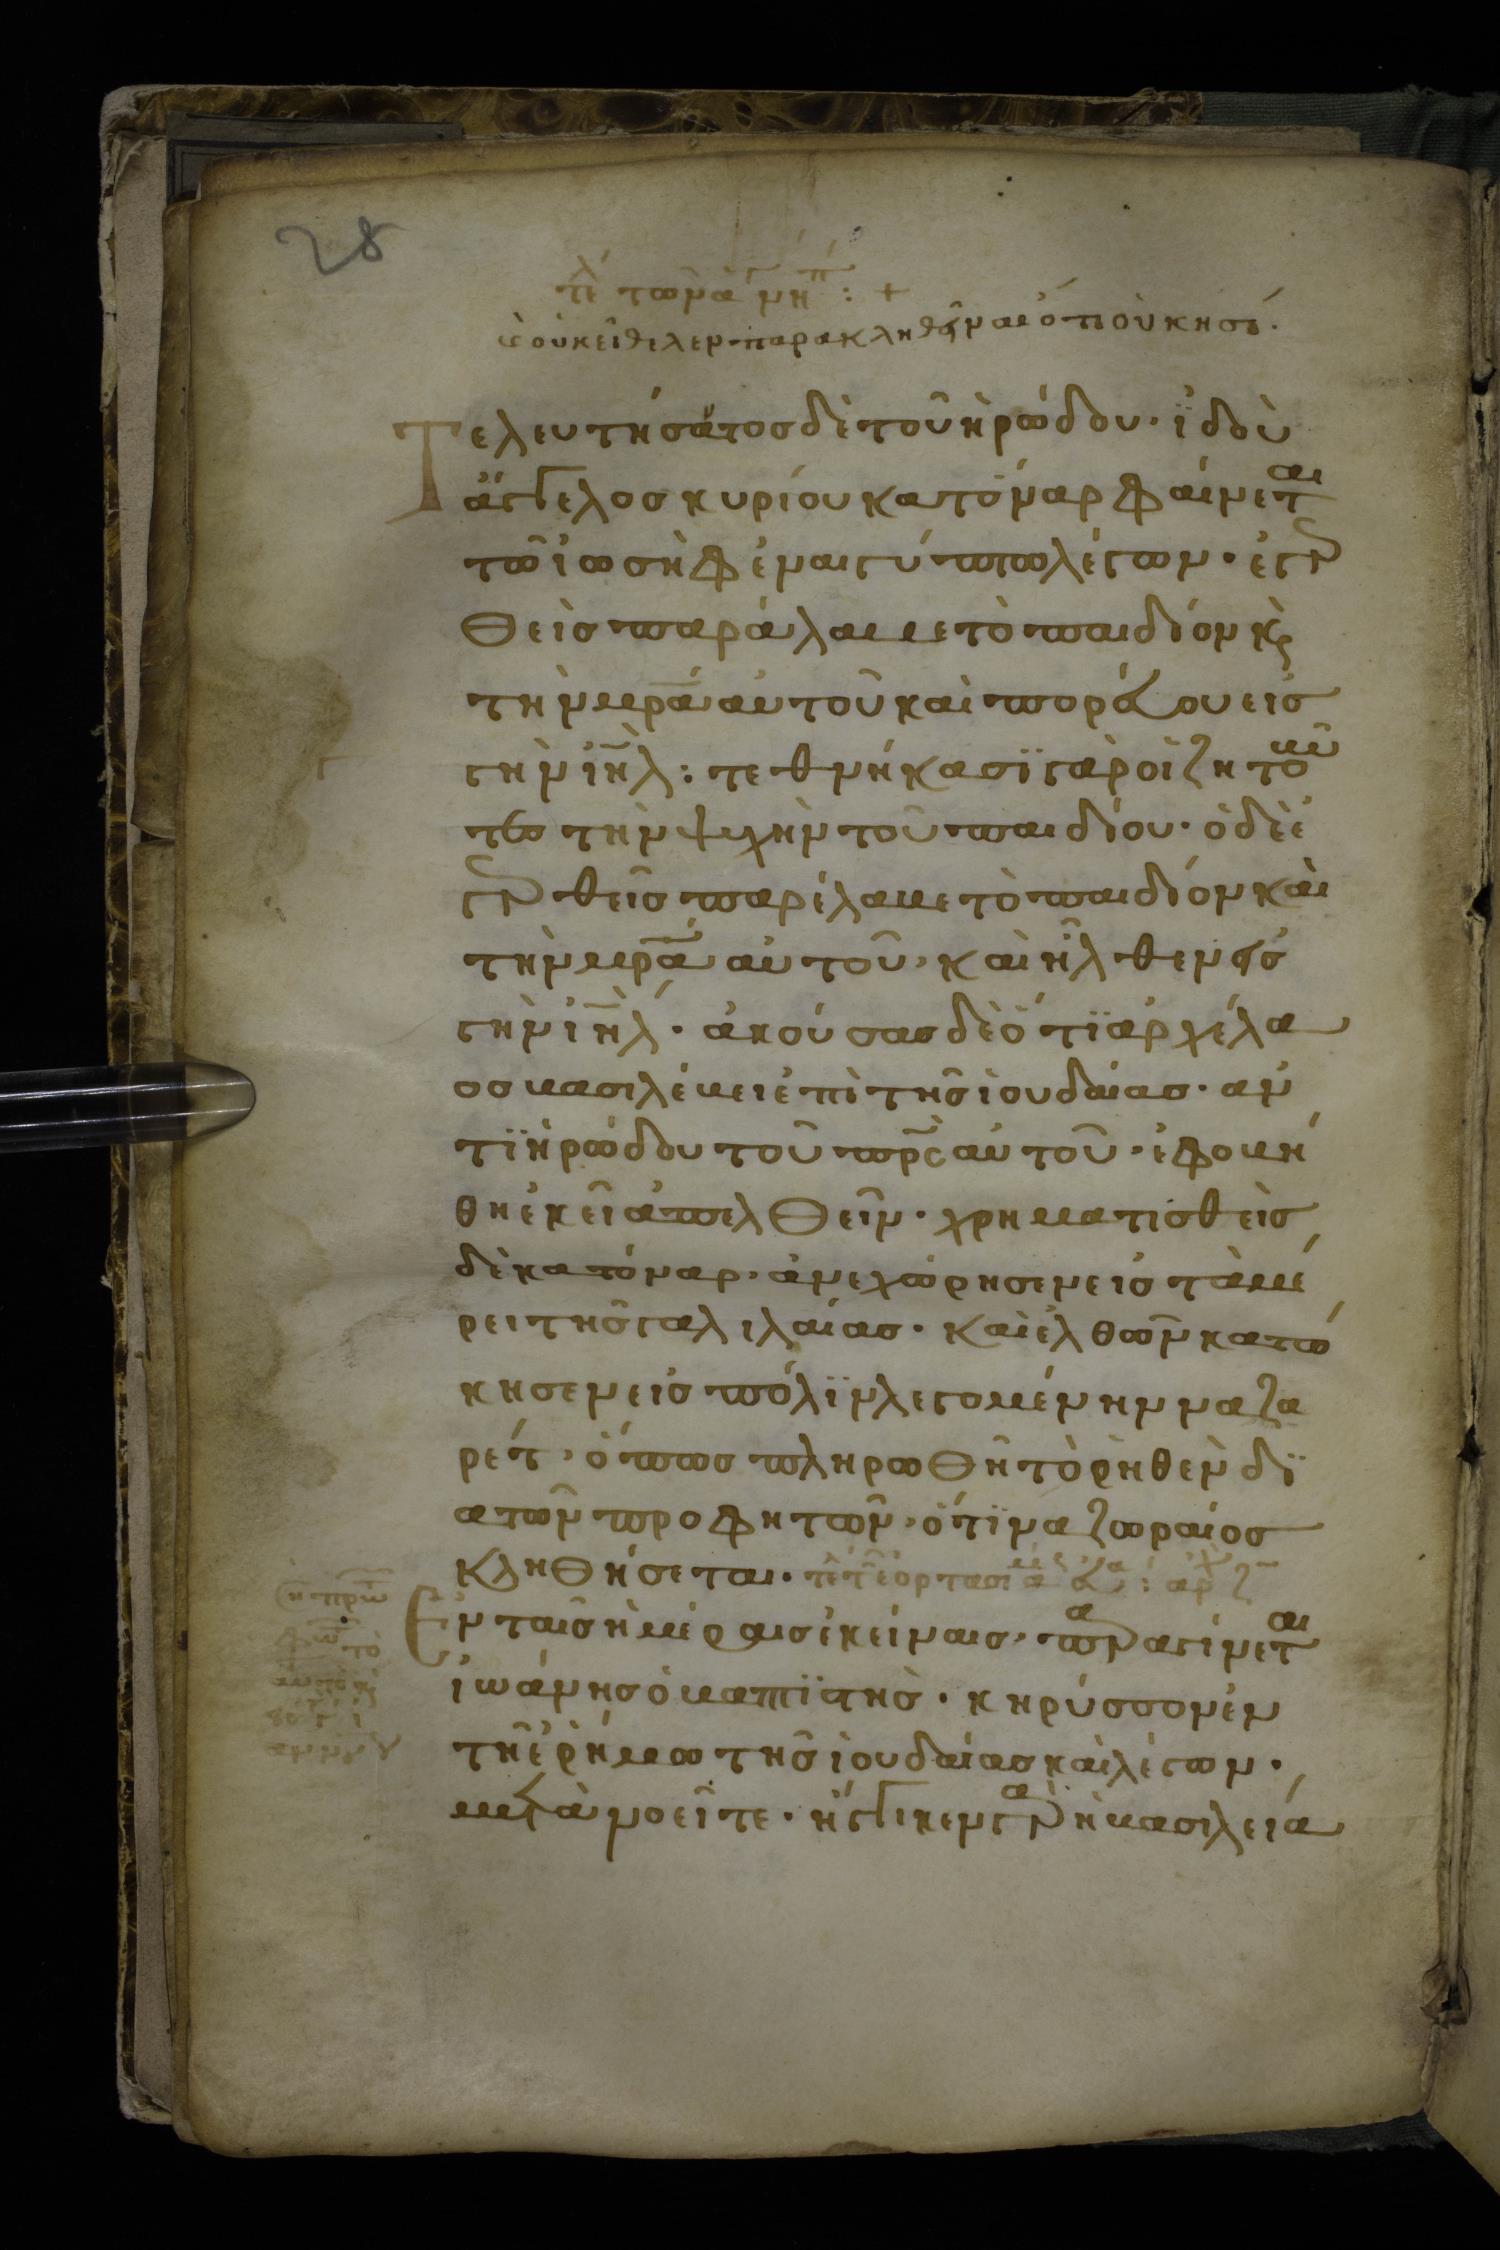 28
και ουκ ειθελεν παρακληθῆναι ὅτι οὐκ ησί.
Τελευτήσαντος δὲ τοῦ ἡρώδου· ἰδοὺ
ἄγγελος κυρίου κατόναρ φαίνεται
τῶ ἰωσὴφ ἐν αιγύπτω λέγων· ἐγερ
θεὶς παράλαβε τὸ παιδίον κ(αὶ)
τὴν μρ̅α αὐτοῦ καὶ πορεύου εἰς
γῆν ιη̅λ: τεθνήκασϊ γὰρ οἱ ζητοῦν
τες τὴν ψυχὴν τοῦ παιδίου· ὁ δὲ ἐ
γερθεὶς παρέλαβε τὸ παιδίον καὶ
τὴν μρ̅α αὐτοῦ, καὶ ἦλθεν εἰς
γῆν ιη̅λ· ἀκούσας δὲ ὅτϊ ἀρχέλα
ος βασιλέβει ἐπὶ τῆς ἰουδαίας· ἀν
τϊ ἡρώδου τοῦ πρ̅ς αὐτοῦ· ἐφοβή
θη ἐκεῖ ἀπελθεῖν· χρηματισθεὶς
δὲ κατόναρ, ἀνεχώρησεν εἰς τὰ μέ
ρει τῆς γαλιλαίας· καὶ ἐλθῶν κατώ
κησεν εἰς πόλϊν λεγομένην ναζα
ρέτ, ὅπως πληρωθῆ τὸ ρὴθὲν δϊ
α τῶν προφητῶν, ὅτϊ ναζωραίος
κληθήσεται·
Ἐν ταῖς ἡμέραις ἐκείναις, παραγίνεται
ἰωάννης ὁ βαπτϊστὴς· κηρύσσον ἐν
τῆ ἐρήμω τῆς ἰουδαίας καὶ λέγων·
μετανοεῖτε· ἤγγικεν γὰρ ἡ βασιλεία